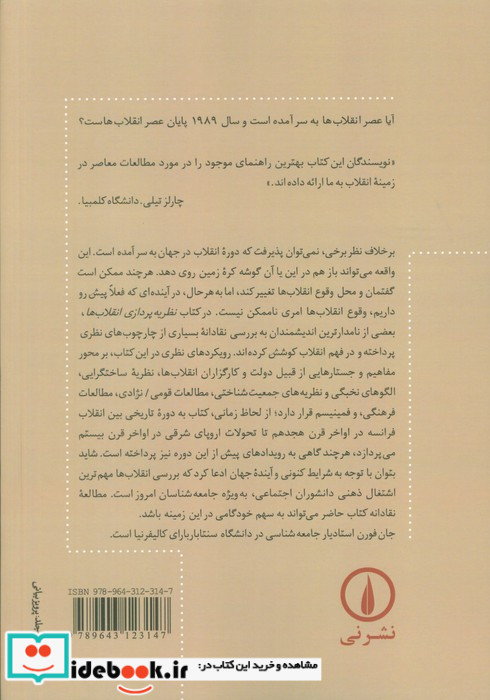 آیا عصر انقلاب‌ها به سر آمده است و سال ۱۹۸۹ پایان عصر انقلاب‌هاست؟
«نویسندگان این کتاب بهترین راهنمای موجود را در مورد مطالعات معاصر در
زمینهٔ انقلاب به ما ارائه داده‌اند.»
چارلز تیلی. دانشگاه کلمبیا.
برخلاف نظر برخی، نمی‌توان پذیرفت که دورهٔ انقلاب در جهان به سر آمده است. این
واقعه می‌تواند باز هم در این یا آن گوشه کرهٔ زمین روی دهد. هرچند ممکن است
گفتمان و محل وقوع انقلاب‌ها تغییر کند، اما به هر حال، در آینده‌ای که فعلاً پیش رو
داریم، وقوع انقلاب‌ها امری ناممکن نیست. در کتاب نظریه‌پردازی انقلاب‌ها،
بعضی از نامدارترین اندیشمندان به بررسی نقادانهٔ بسیاری از چارچوب‌های نظری
پرداخته و در فهم انقلاب کوشش کرده‌اند. رویکردهای نظری در این کتاب، بر محور
مفاهیم و جستارهایی از قبیل دولت و کارگزاران انقلاب‌ها، نظریهٔ ساختگرایی،
الگوهای نخبگی و نظریه‌های جمعیت‌شناختی، مطالعات قومی/نژادی، مطالعات
فرهنگی، و فمینیسم قرار دارد؛ از لحاظ زمانی، کتاب به دورهٔ تاریخی بین انقلاب
فرانسه در اواخر قرن هجدهم تا تحولات اروپای شرقی در اواخر قرن بیستم
می‌پردازد، هرچند گاهی به رویدادهای پیش از این دوره نیز پرداخته است. شاید
بتوان با توجه به شرایط کنونی و آیندهٔ جهان ادعا کرد که بررسی انقلاب‌ها مهم‌ترین
اشتغال ذهنی دانشوران اجتماعی، به‌ویژه جامعه‌شناسان امروز است. مطالعهٔ
نقادانه کتاب حاضر می‌تواند به سهم خود گامی در این زمینه باشد.
جان فورن استادیار جامعه‌شناسی در دانشگاه سنتاباربارای کالیفرنیا است.
ISBN 978-964-312-314-7
9 789643 123147
جلد: پرویز بیانی
نشر نی
idebook.ir
مشاهده و خرید این کتاب در: